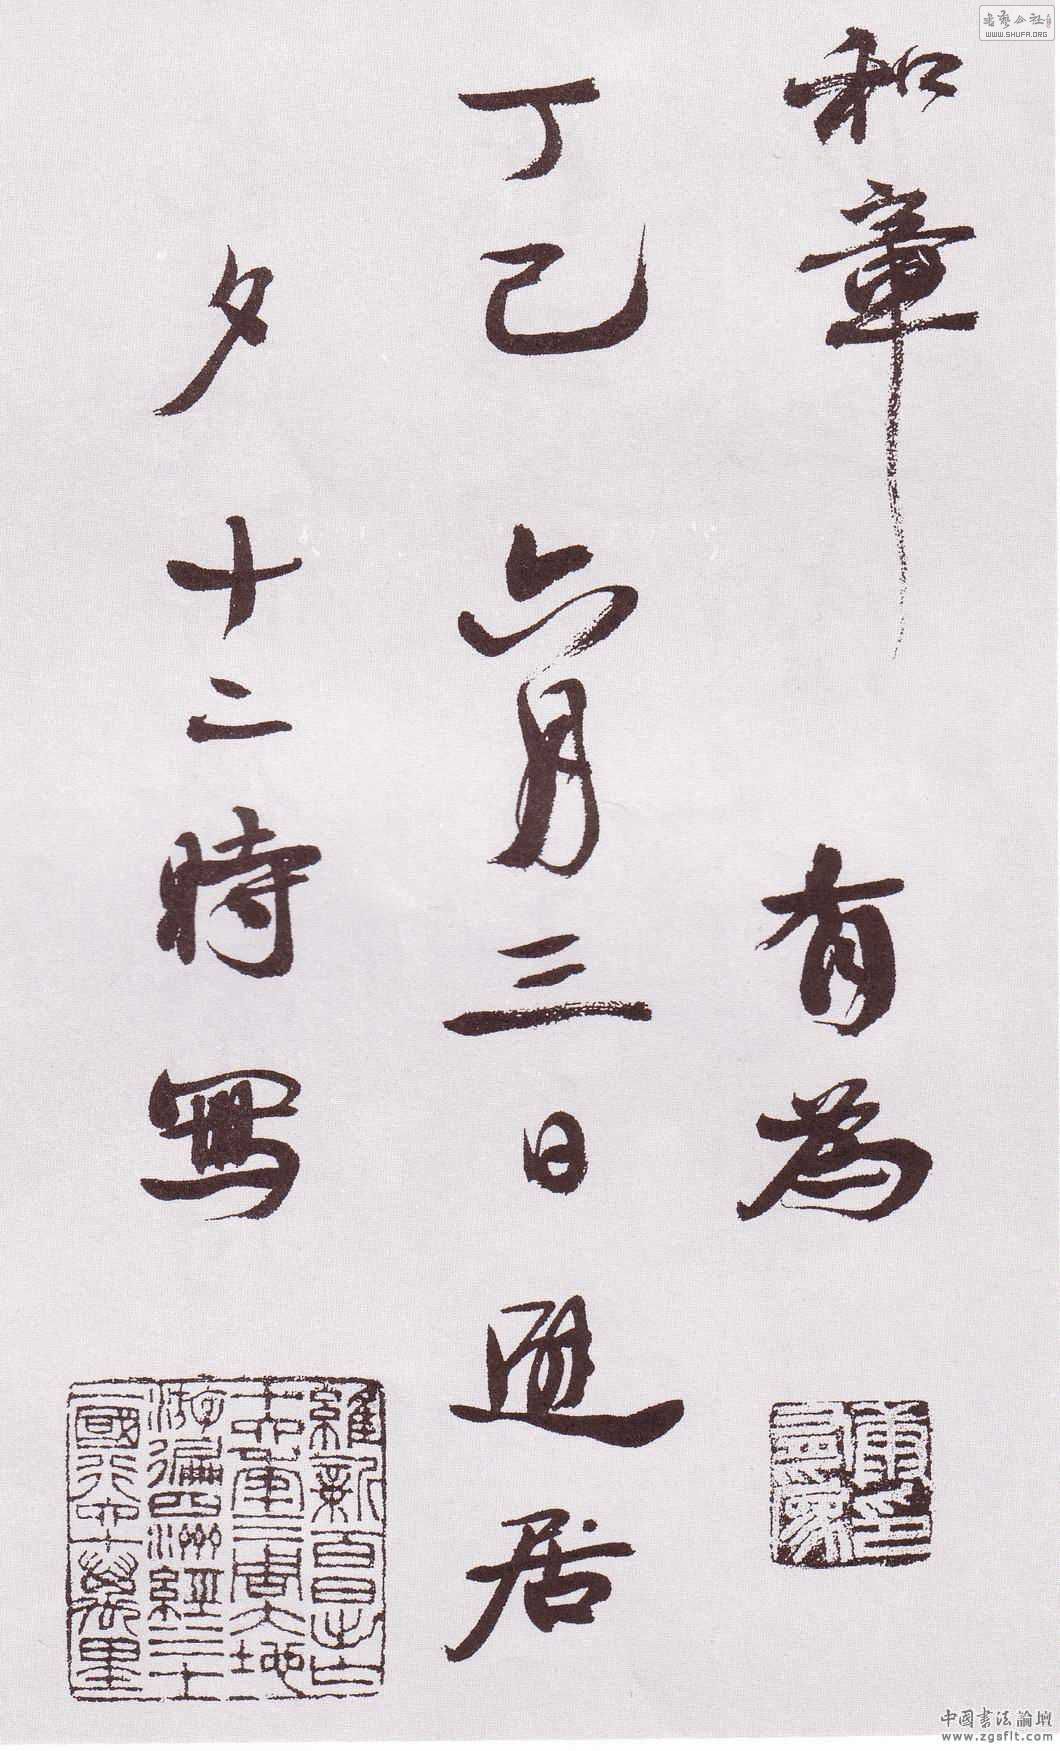 和章 有為
丁巳六月三日居
夕十二時寫
康印有為
維新百日出亡
十六年三周大地
游遍四洲經三十
一國行六十萬里
書藝公社
WWW.SHUFA.ORG
中國書法論壇
www.zgsflt.com